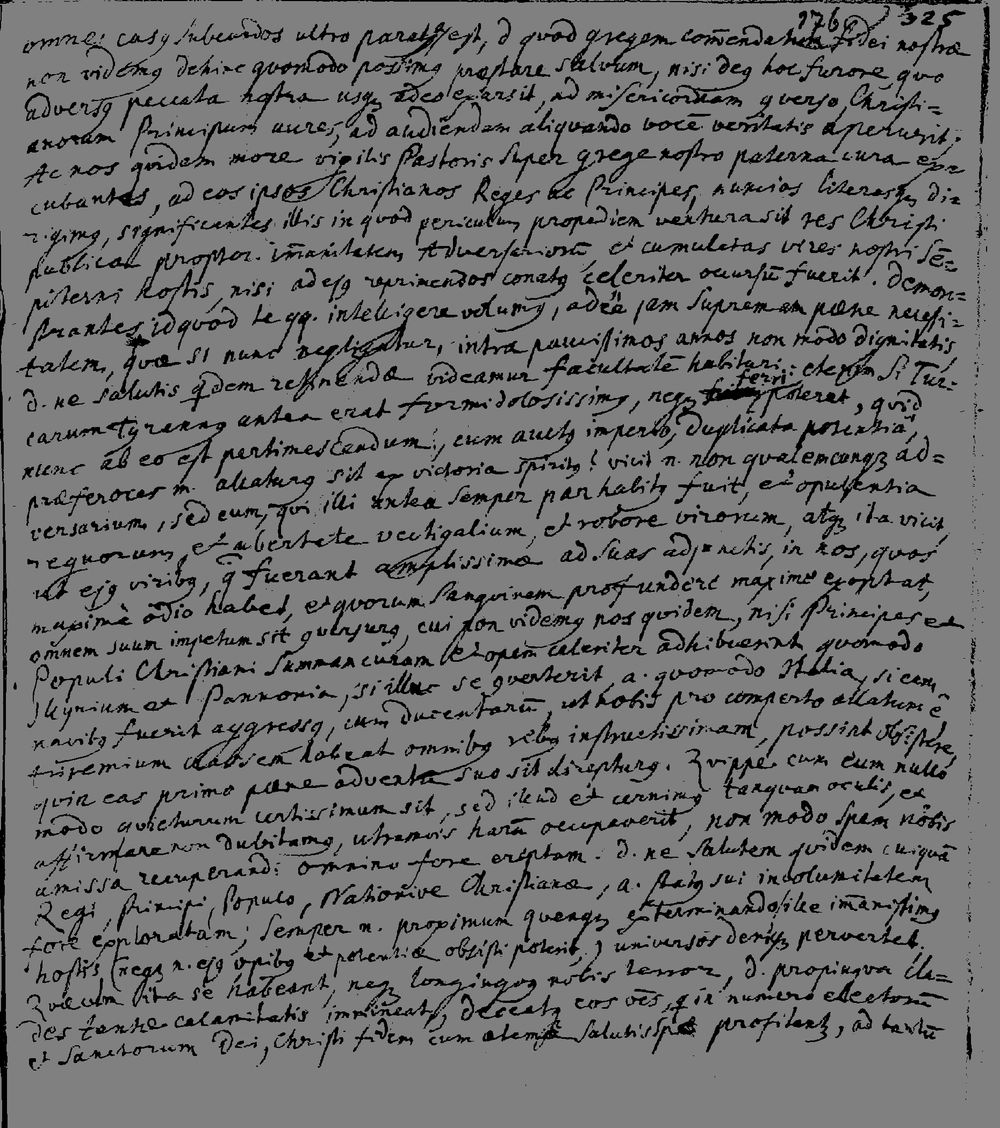 176 325
omnes casq subeundos ultro paratq est, d quod gregem com̄endatum fidei nostræ
non videmq dehinc quomodo possimq præstare salvum, nisi deq hoc furore quo
adversq peccata nostra usqz adeo exarsit, ad misericordiam qverso, Christi=
anorum Principum aures, ad audiendam aliquando vocē veritatis aperuerit.
Ac nos qvidem more vigilis Pastoris super grege nostro paterna cura ex=
cubantes, ad eos ipsos Christianos Reges ac Principes, nuncios literasqz di=
rigimq, significantes illis in quod periculum propediem ventura sit res Christi
publica propter im̄anitatem Adversariorū, et cumulatas vires nostri Se=
piterni hostis, nisi ad ejq reprimendos conatq celeriter occursū fuerit. Demon=
strantes, id quod te qq. intelligere volumq, adeē jam supremam pæne necessi=
tatem, quæ si nunc negligatur, intra paucissimos annos non modo dignitatis
d. ne salutis qdem retinendæ videamur facultatē habituri: etenim si Tur=
carum Tyrannq antea erat formidolosissimq, neqz ferri poterat, quid
nunc ab eo est pertimescendum, cum auctq imperio, duplicata potentia,
præferoces m. allaturq sit ex victoria spiritq? vicit n. non qualemcunqz ad=
versarium, sed eum, qui illi antea semper par habitq fuit, et opulentia
regnorum, et ubertate vectigalium, et robore virorum, atqz ita vicit,
ut ejq viribq, q̄ fuerant amplissimæ ad suas adjunctis, in nos, quos
maximè odio habet, et quorum sanguinem profundere maximè exoptat,
omnem suum impetum sit qversurq, cui non videmq nos quidem, nisi Principes et
Populi Christiani summam curam et opem celeriter adhibuerint quomodo
Illyrium et Pannonia, si illuc se qverterit, a. quomodo Italia, si eam
navibq fuerit aggressq, cum ducentarū, ut nobis pro comperto allatum ē
triremium classem habeat omnibq rebq instructissimam, possint obsistere,
quin eas primo pæne adventu suo sit direpturq. Quippe cum eum nullo
modo quieturum certissimum sit, sed illud et cernimq tanquam oculis, et
affirmare non dubitamq, utramvis harū occupaverit, non modo spem nobis
amissa recuperandi omnino fore ereptam. d. ne salutem quidem cuiquā
Regi, Principi, Populo, Nationive Christianæ, a. statq sui incolumitatem
fore exploratam; semper n. proximum quemqz exterminando, ille im̄anissimq
hostis (neqz n. ejq opibq et potentiæ obsisti poterit,) universos deniqz pervertet.
Quæ cum ita se habeant, neqz longinquq nobis terror, d. propinqva cla=
des tantæ calamitatis immineat, deceatq eos oēs, q in numero electorū
et Sanctorum Dei, Christi fidem cum æternæ salutis spe profitentq, ad tantū